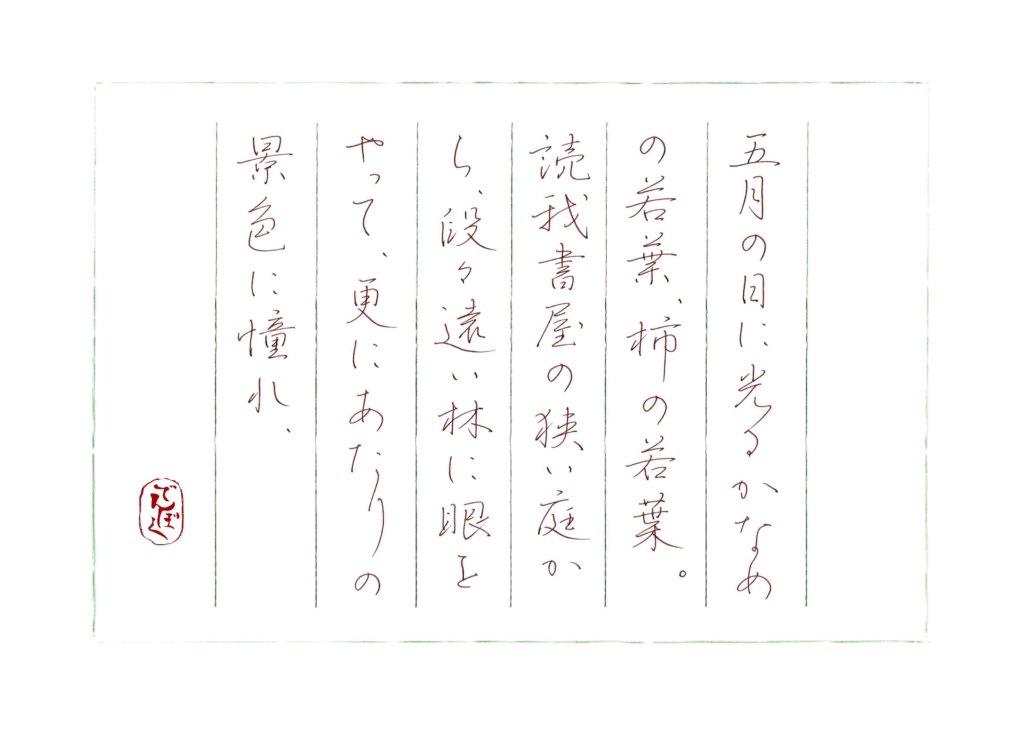 五月の日に光るかなめ
の若葉、柿の若葉。
読我書屋の狭い庭か
ら、段々遠い林に眼を
やって、更にあたりの
景色に憧れ、
でんぼく